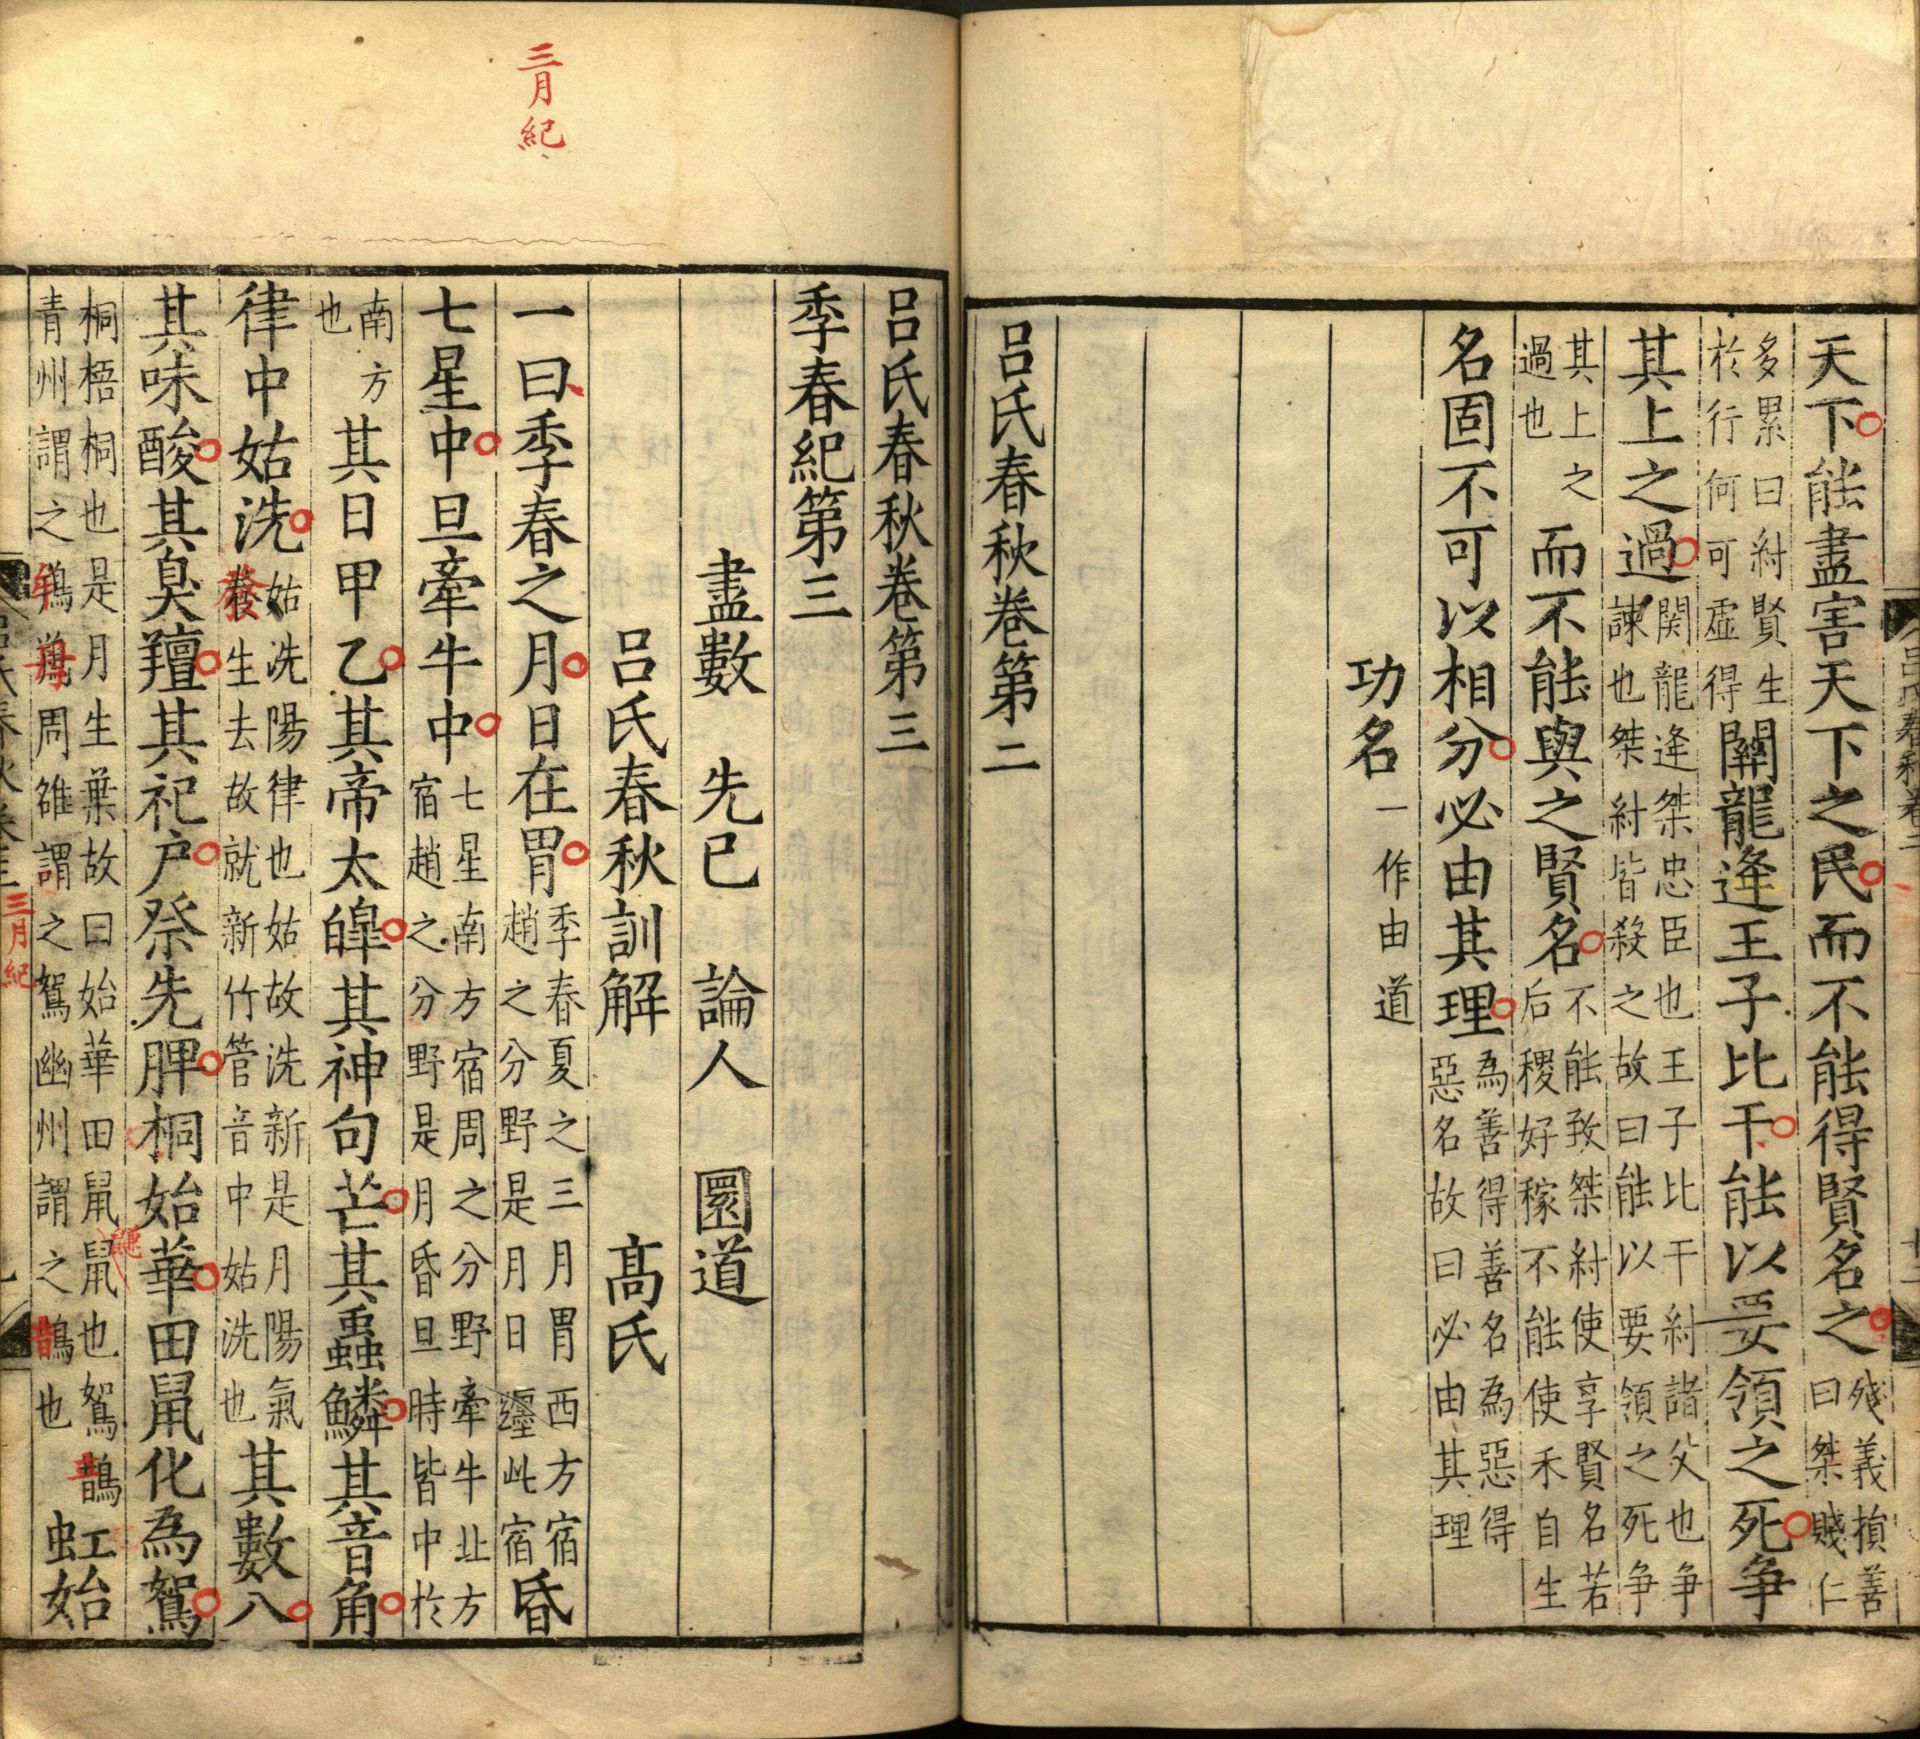 天下能盡害天下之民而不能得賢名之殘義損善曰桀賤仁
多累曰紂賢生於行何可虛得關龍逄王子比干能以要領之死爭
其上之過關龍逄桀忠臣也王子比干紂諸父也爭諫也桀紂皆殺之故曰能以要領之死爭
其上之過也而不能與之賢名不能致桀紂使享賢名若后稷好稼不能使禾自生
名固不可以相分必由其理為善得善名為惡得惡名故曰必由其理
功名一作由道
呂氏春秋卷第二
呂氏春秋卷第三
季春紀第三
盡數 先已 論人 圜道
呂氏春秋訓解 高氏
一曰季春之月日在胃季春夏之三月胃西方宿趙之分野是月日躔此宿昏
七星中旦牽牛中七星南方宿周之分野牽牛北方宿趙之分野是月昏旦時皆中於
南方也其日甲乙其帝太皞其神句芒其蟲鱗其音角
律中姑洗姑洗陽律也姑故洗新是月陽氣養生去故就新竹管音中姑洗也其數八
其味酸其臭羶其祀戶祭先脾桐始華田鼠化為鴽
桐梧桐也是月生葉故曰始華田鼠鼠也鴽鶕青州謂之鶉周雒謂之鴽幽州謂之鶕也虹始
三月紀
呂氏春秋卷二
呂氏春秋卷三
三月紀